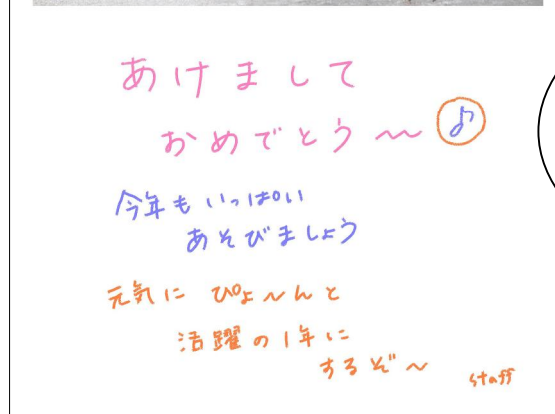 あけまして
おめでとう〜〜♪
今年もいっぱい
あそびましょう
元気に ぴょ〜んと
活躍の1年に
するぞ〜
staff